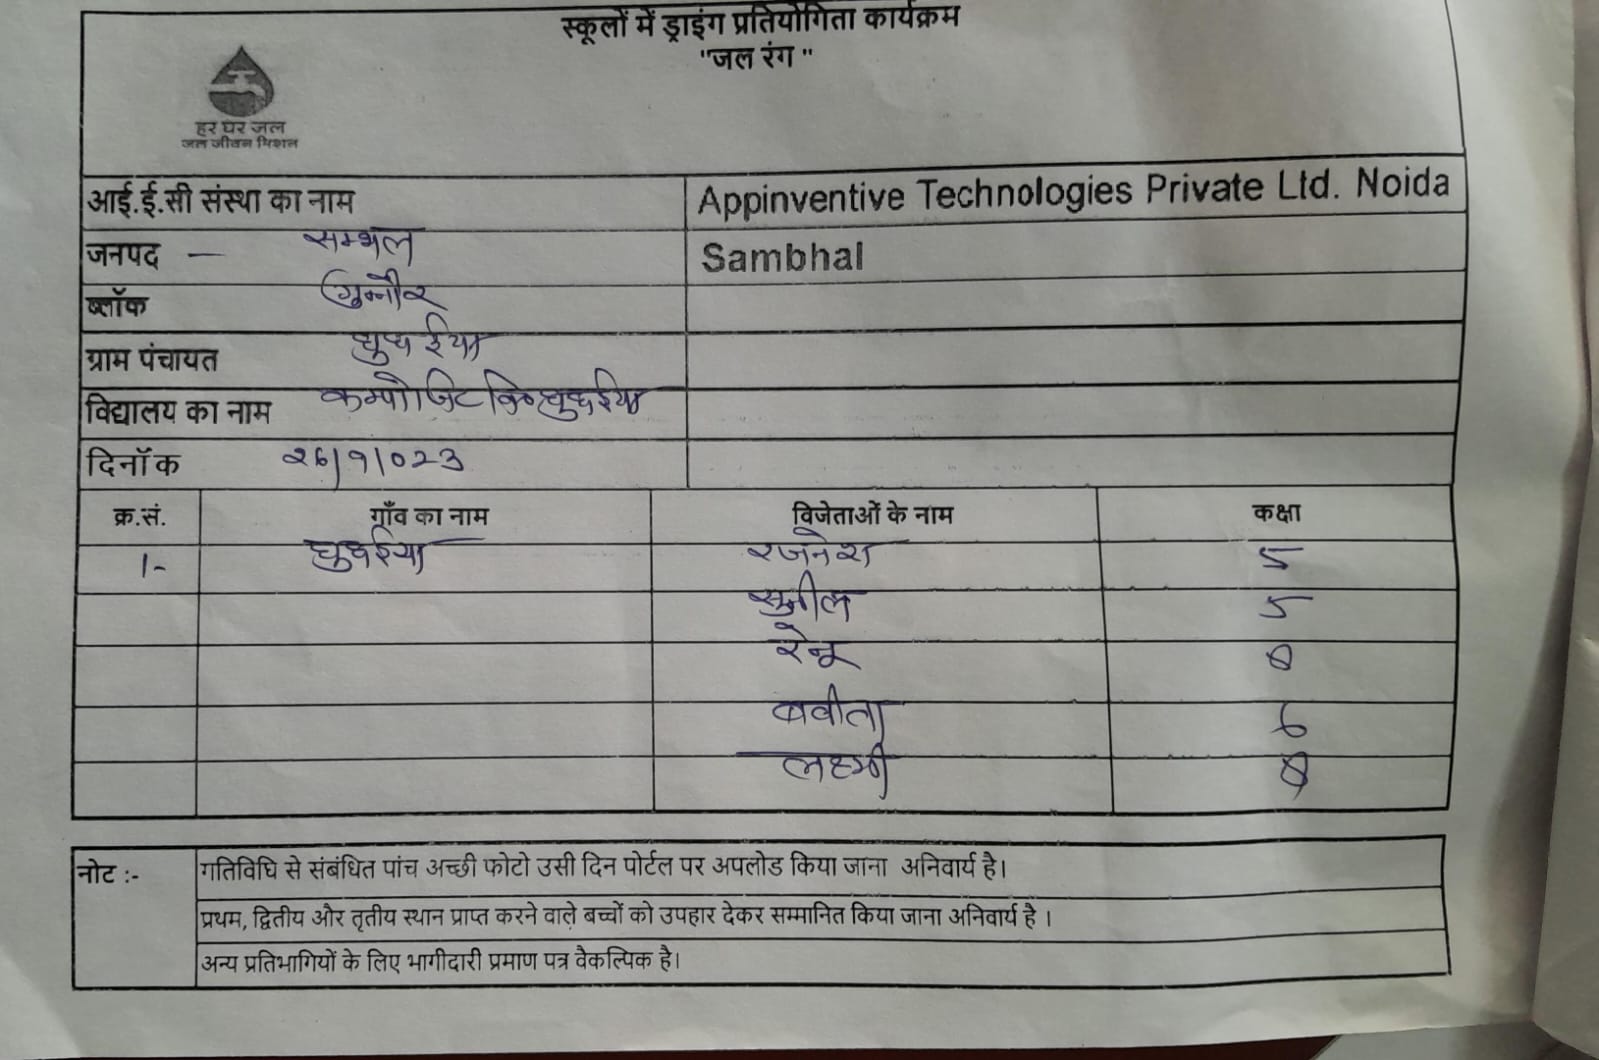 स्कूलों में ड्राइंग प्रतियोगिता कार्यक्रम
"जल रंग "
हर घर जल
जल जीवन मिशन
आई.ई.सी संस्था का नाम Appinventive Technologies Private Ltd. Noida
जनपद — सम्भल Sambhal
ब्लॉक गुन्नौर
ग्राम पंचायत
विद्यालय का नाम कम्पोजिट
दिनाँक २6/9/023
क्र.सं. गाँव का नाम विजेताओं के नाम कक्षा
1- रजनेश 5
सुनील 5
रेनू
बवीता 6
लक्ष्मी
नोट :- गतिविधि से संबंधित पांच अच्छी फोटो उसी दिन पोर्टल पर अपलोड किया जाना अनिवार्य है।
प्रथम, द्वितीय और तृतीय स्थान प्राप्त करने वाले बच्चों को उपहार देकर सम्मानित किया जाना अनिवार्य है ।
अन्य प्रतिभागियों के लिए भागीदारी प्रमाण पत्र वैकल्पिक है।